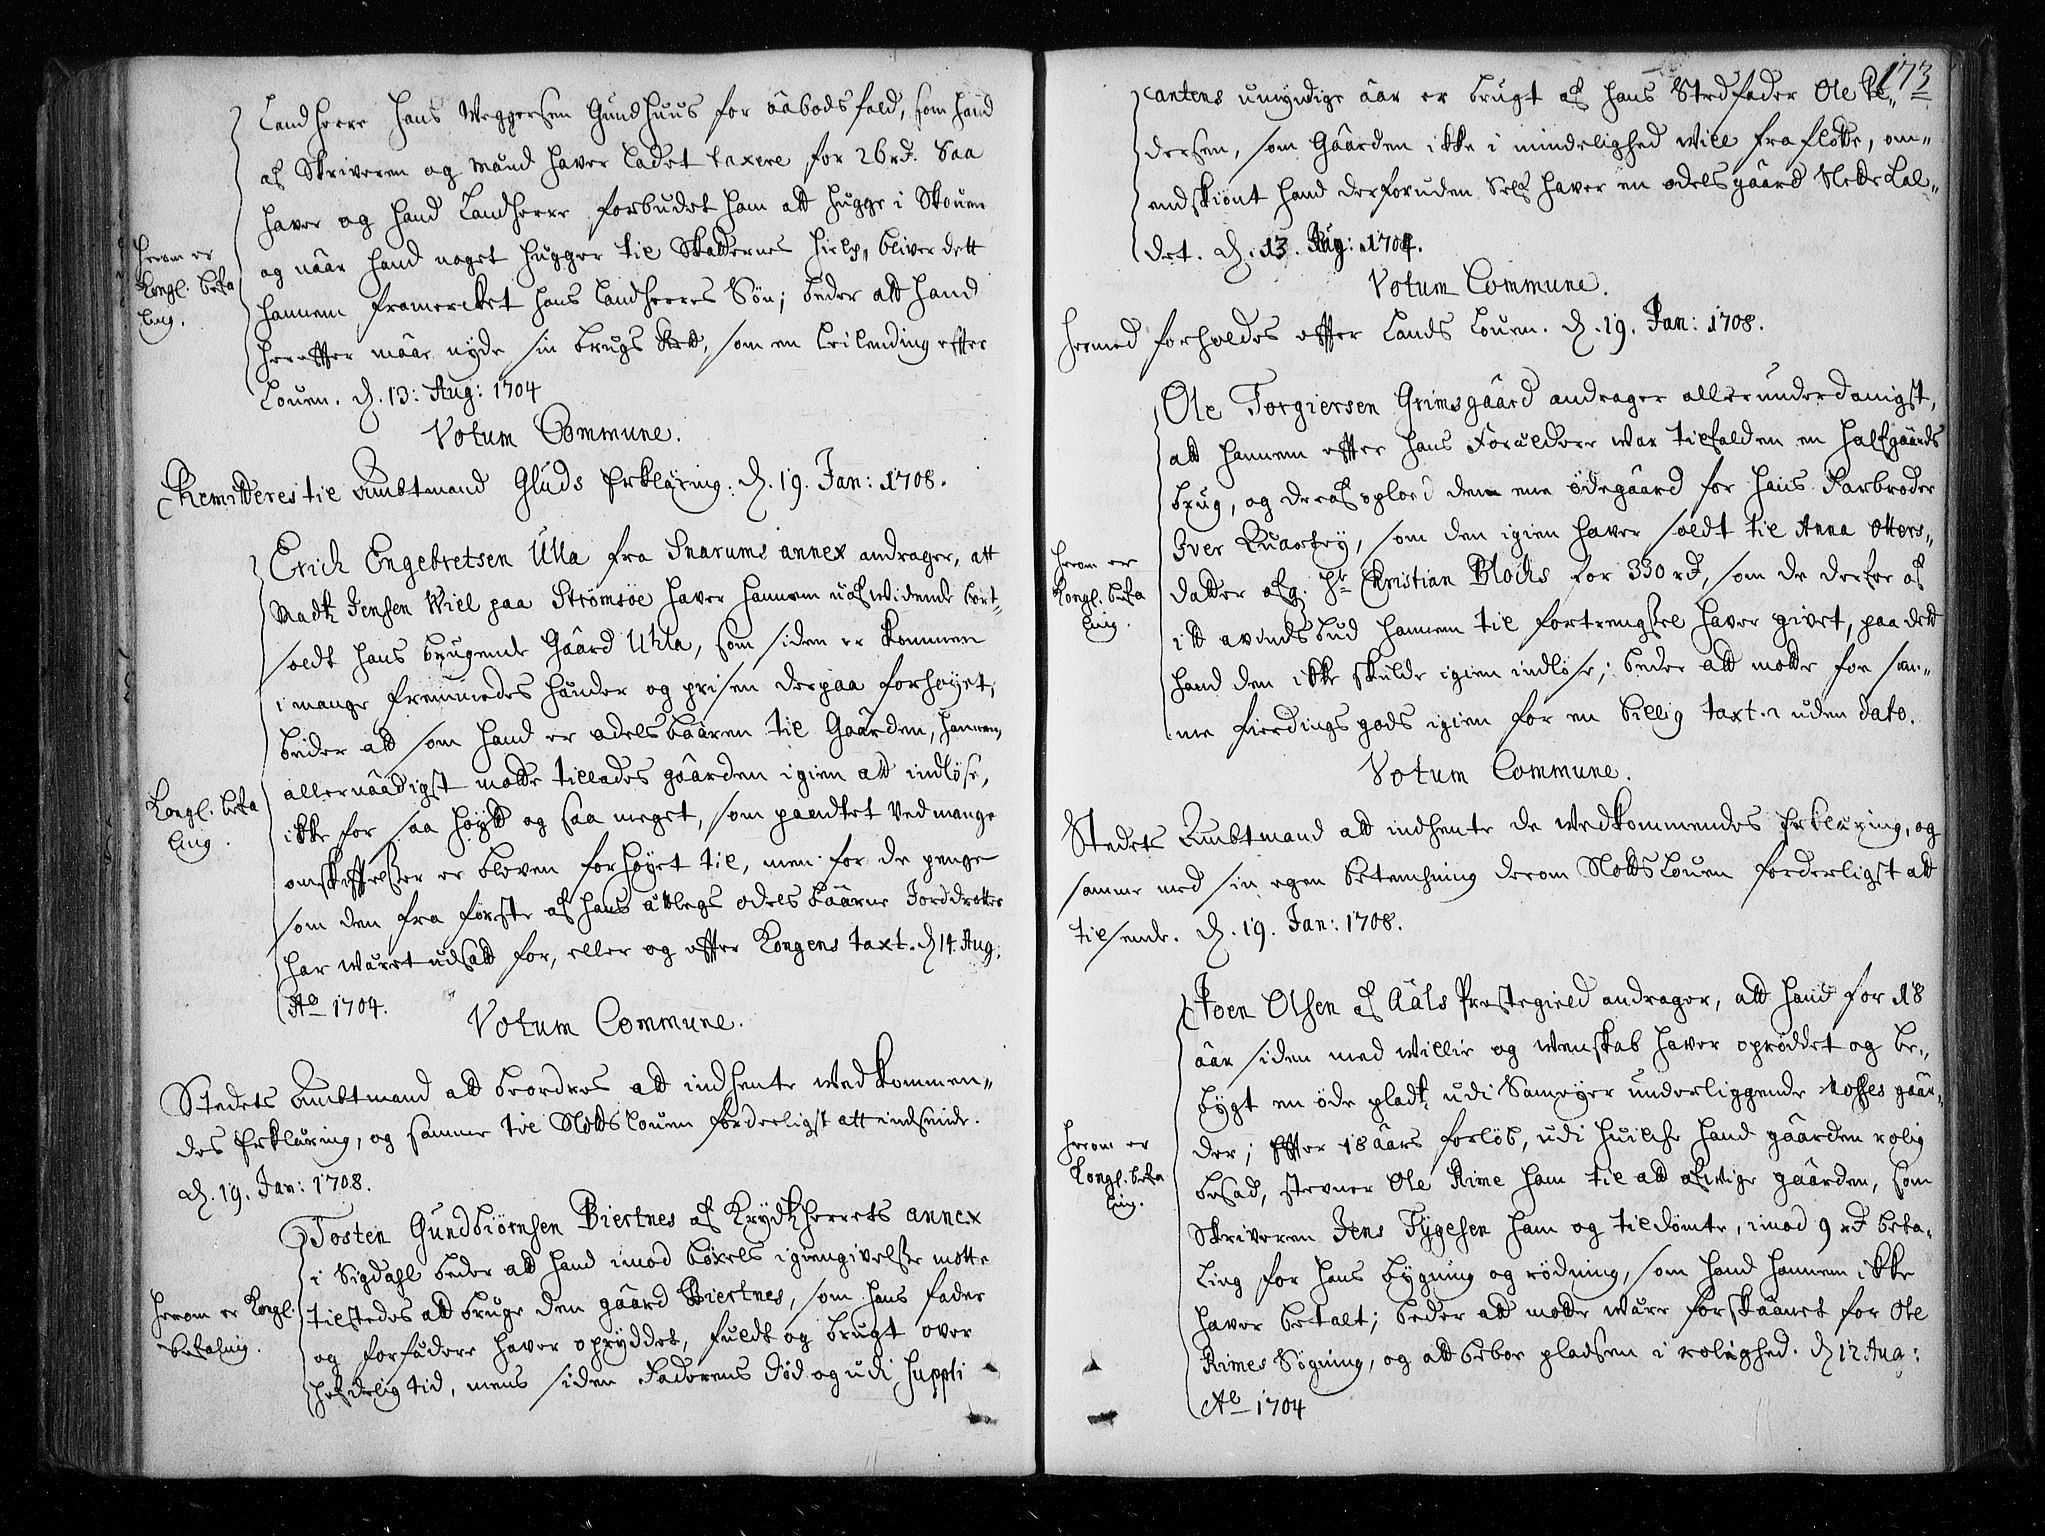 Landherre Hans Weggersen Gundhuus for aabodsfald, som hand
af Skriveren og mænd haver ladet taxere for 26 rd. Saa
haver og hand Landherre forbudet ham att hugge i Skouen
og naar hand noget hugger til Skatternes hielp, bliver dett
hannem framercket hans Landherres Søn; beder att hand
herefter maae nyde sin brugs Rett, som en Leilending efter
Louen. D. 13: Aug: 1704
herom er
Kongl. befa
ling.
Votum Commune.
Remitteres til Ambtmand Gluds Erklæring. D. 19. Jan: 1708.
Erich Engebretsen Ulla fra Snarums annex andrager, att
Madtz Jensen Wiel paa Strømsøe haver hannem uafwidende bort-
soldt hans brugende Gaard Uhla, som siden er kommen
i mange fremmedes hænder og prisen derpaa forhøyet;
beder att som hand er odelsbaaren til Gaarden, hannem
allernaadigst motte tillades gaarden igien att indløse,
ikke for saa høytt og saa meget, som pandtet ved mange
omskiftelsser er bleven forhøyet til, men for de penge
som den fra første af hans ættlegs odelsbaarne Jorddrotter
har wæret udsatt for, eller og efter Kongens taxt. D 14. Aug:
Ao 1704.
Kongl. befa
ling.
Votum Commune.
Stedets Ambtmand att beordres att indhente wedkommen-
des Erklæring, og samme til Slotts Louen forderligst att indsende.
D. 19. Jan: 1708.
Tosten Gundbiørnsen Biertnes af Krydtzherrets annex
i Sigdahl beder att hand imod bøxels igiengivelsse motte
tilstedes att bruge den gaard Biertnes, som hans fader
og forfædere haver opryddet, fuldt og brugt over
hefdelig tid, mens siden Faderens død og udi Suppli
herom er Kongl.
befaling.
173
cantens umyndige aar er brugt af hans Stedfader Ole Pe-
dersen, som Gaarden ikke i mindelighed will fra fløtte, om-
endskiønt hand derforuden Self haver en odelsgaard Slette Lal-
det. D. 13. Aug: 1704.
Votum Commune.
Hermed forholdes efter Lands Louen. D. 19. Jan: 1708.
Ole Torgiersen Grimsgaard andrager allerunderdanigst,
att hannem efter hans Forældere war tilfalden en halfgaards
brug, og deraf oploed den ene ødegaard for hans Farbroder
Iver Kuarfry, som den igien haver soldt til Anna Otters-
datter afg. Hr Christian Blochs for 330 rd, som de derfor af
itt avindsbud hannem til fortrengssel haver givet, paa dett
hand den ikke skulde igien indløse; beder att motte for sam-
me fierdings gods igien for en billig taxt. uden dato.
herom er
Kongl. befa
ling.
Votum Commune.
Stedets Ambtmand att indhente de wedkommendes Erklæring, og
samme med sin egen betenchning derom Slotts Louen forderligst att
tilsende. D. 19. Jan: 1708.
Joen Olsen af Aals Prestegield andrager, att hand for 18
aar siden med willie og wenskab haver oprøddet og be-
bygt en øde pladtz udi Samøyer underliggende Noss gaar-
der; Efter 18 aars forløb, udi huilche hand gaarden rolig
besad, stevner Ole Rime ham til att afwige gaarden, som
Skriveren Jens Tygesen ham og tildømte, imod 9 rd beta-
ling for hans bygning og rødning, som hand hannem ikke
haver betalt; beder att motte wære forskaanet for Ole
Rimes Søgning, og att beboe pladsen i rolighed. D 12 Aug:
Ao 1704
herom er
Kongl. befa
ling.